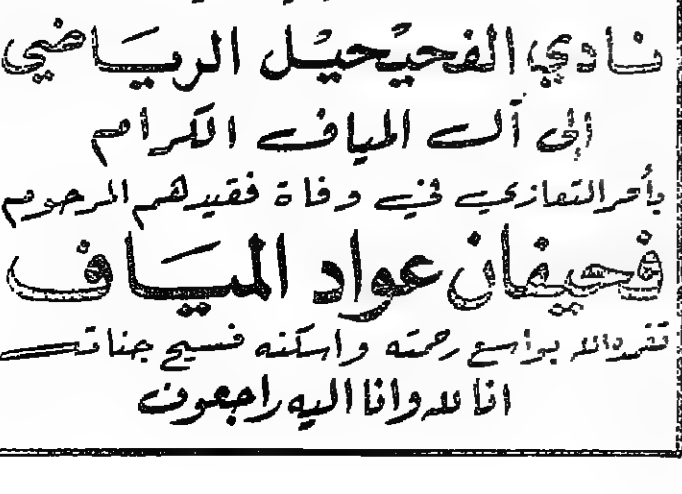 نادي الفحيحيل الرياضي
إلى آل المياف الكرام
بأحر التعازي في وفاة فقيدهم المرحوم
فحيفان عواد المياف
تغمده الله بواسع رحمته واسكنه فسيح جناته
انا لله وانا اليه راجعون